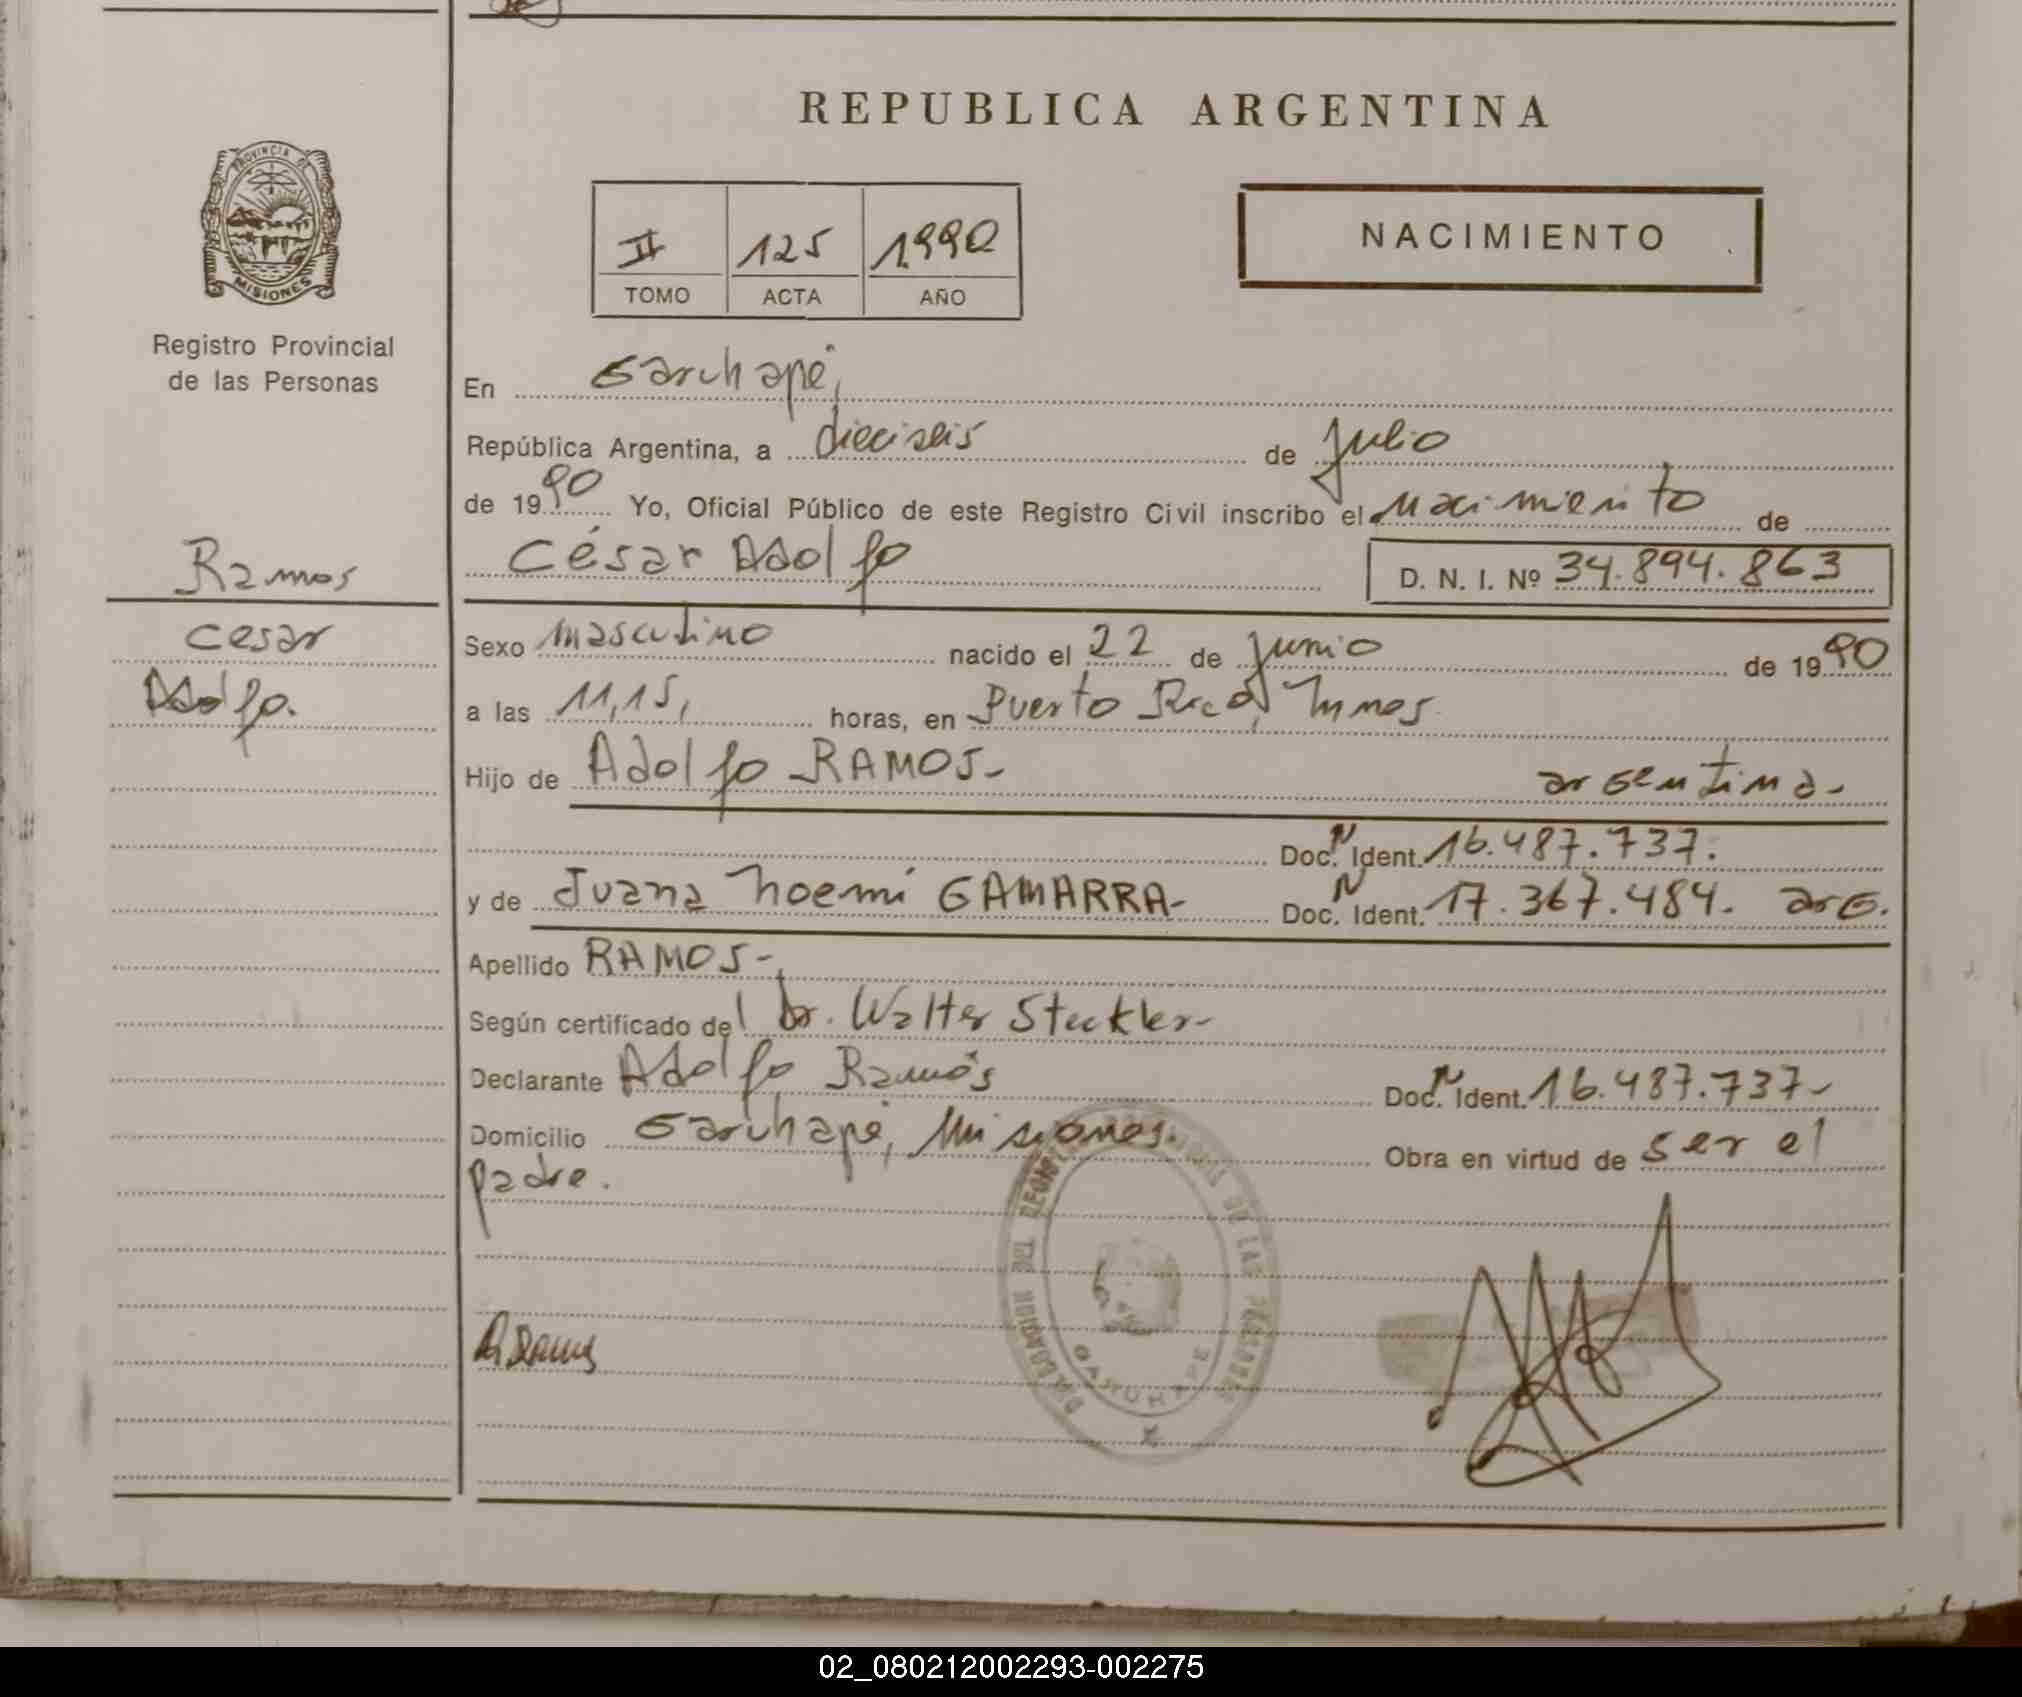 REPUBLICA ARGENTINA
PROVINCIA DE
MISIONES
Registro Provincial
de las Personas
II 125 1990
TOMO ACTA AÑO
NACIMIENTO
En Garuhapé,
República Argentina, a dieciseis de Julio
de 1990 Yo, Oficial Público de este Registro Civil inscribo el nacimiento de
César Adolfo D. N. I. Nº 34.894.863
Ramos
Cesar
Adolfo.
Sexo masculino nacido el 22 de junio de 1990
a las 11,15, horas, en Puerto Rico, Mnes.
Hijo de Adolfo RAMOS- argentina-
Doc. N Ident. 16.487.737.
y de Juana Noemí GAMARRA- Doc. N Ident. 17.367.484. arg.
Apellido RAMOS-
Según certificado del Dr. Walter Steckler-
Declarante Adolfo Ramos Doc. N Ident. 16.487.737-
Domicilio Garuhapé, Misiones. Obra en virtud de ser el
padre.
DELEGACION DEL REGISTRO DE LAS PERSONAS
GARUHAPE
02_080212002293-002275